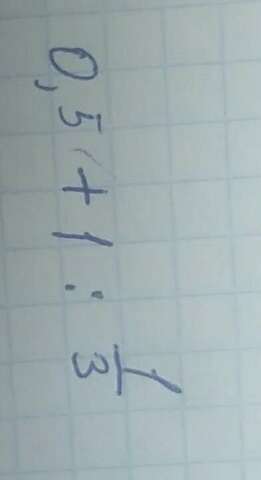 0,5 + 1 : 1/3